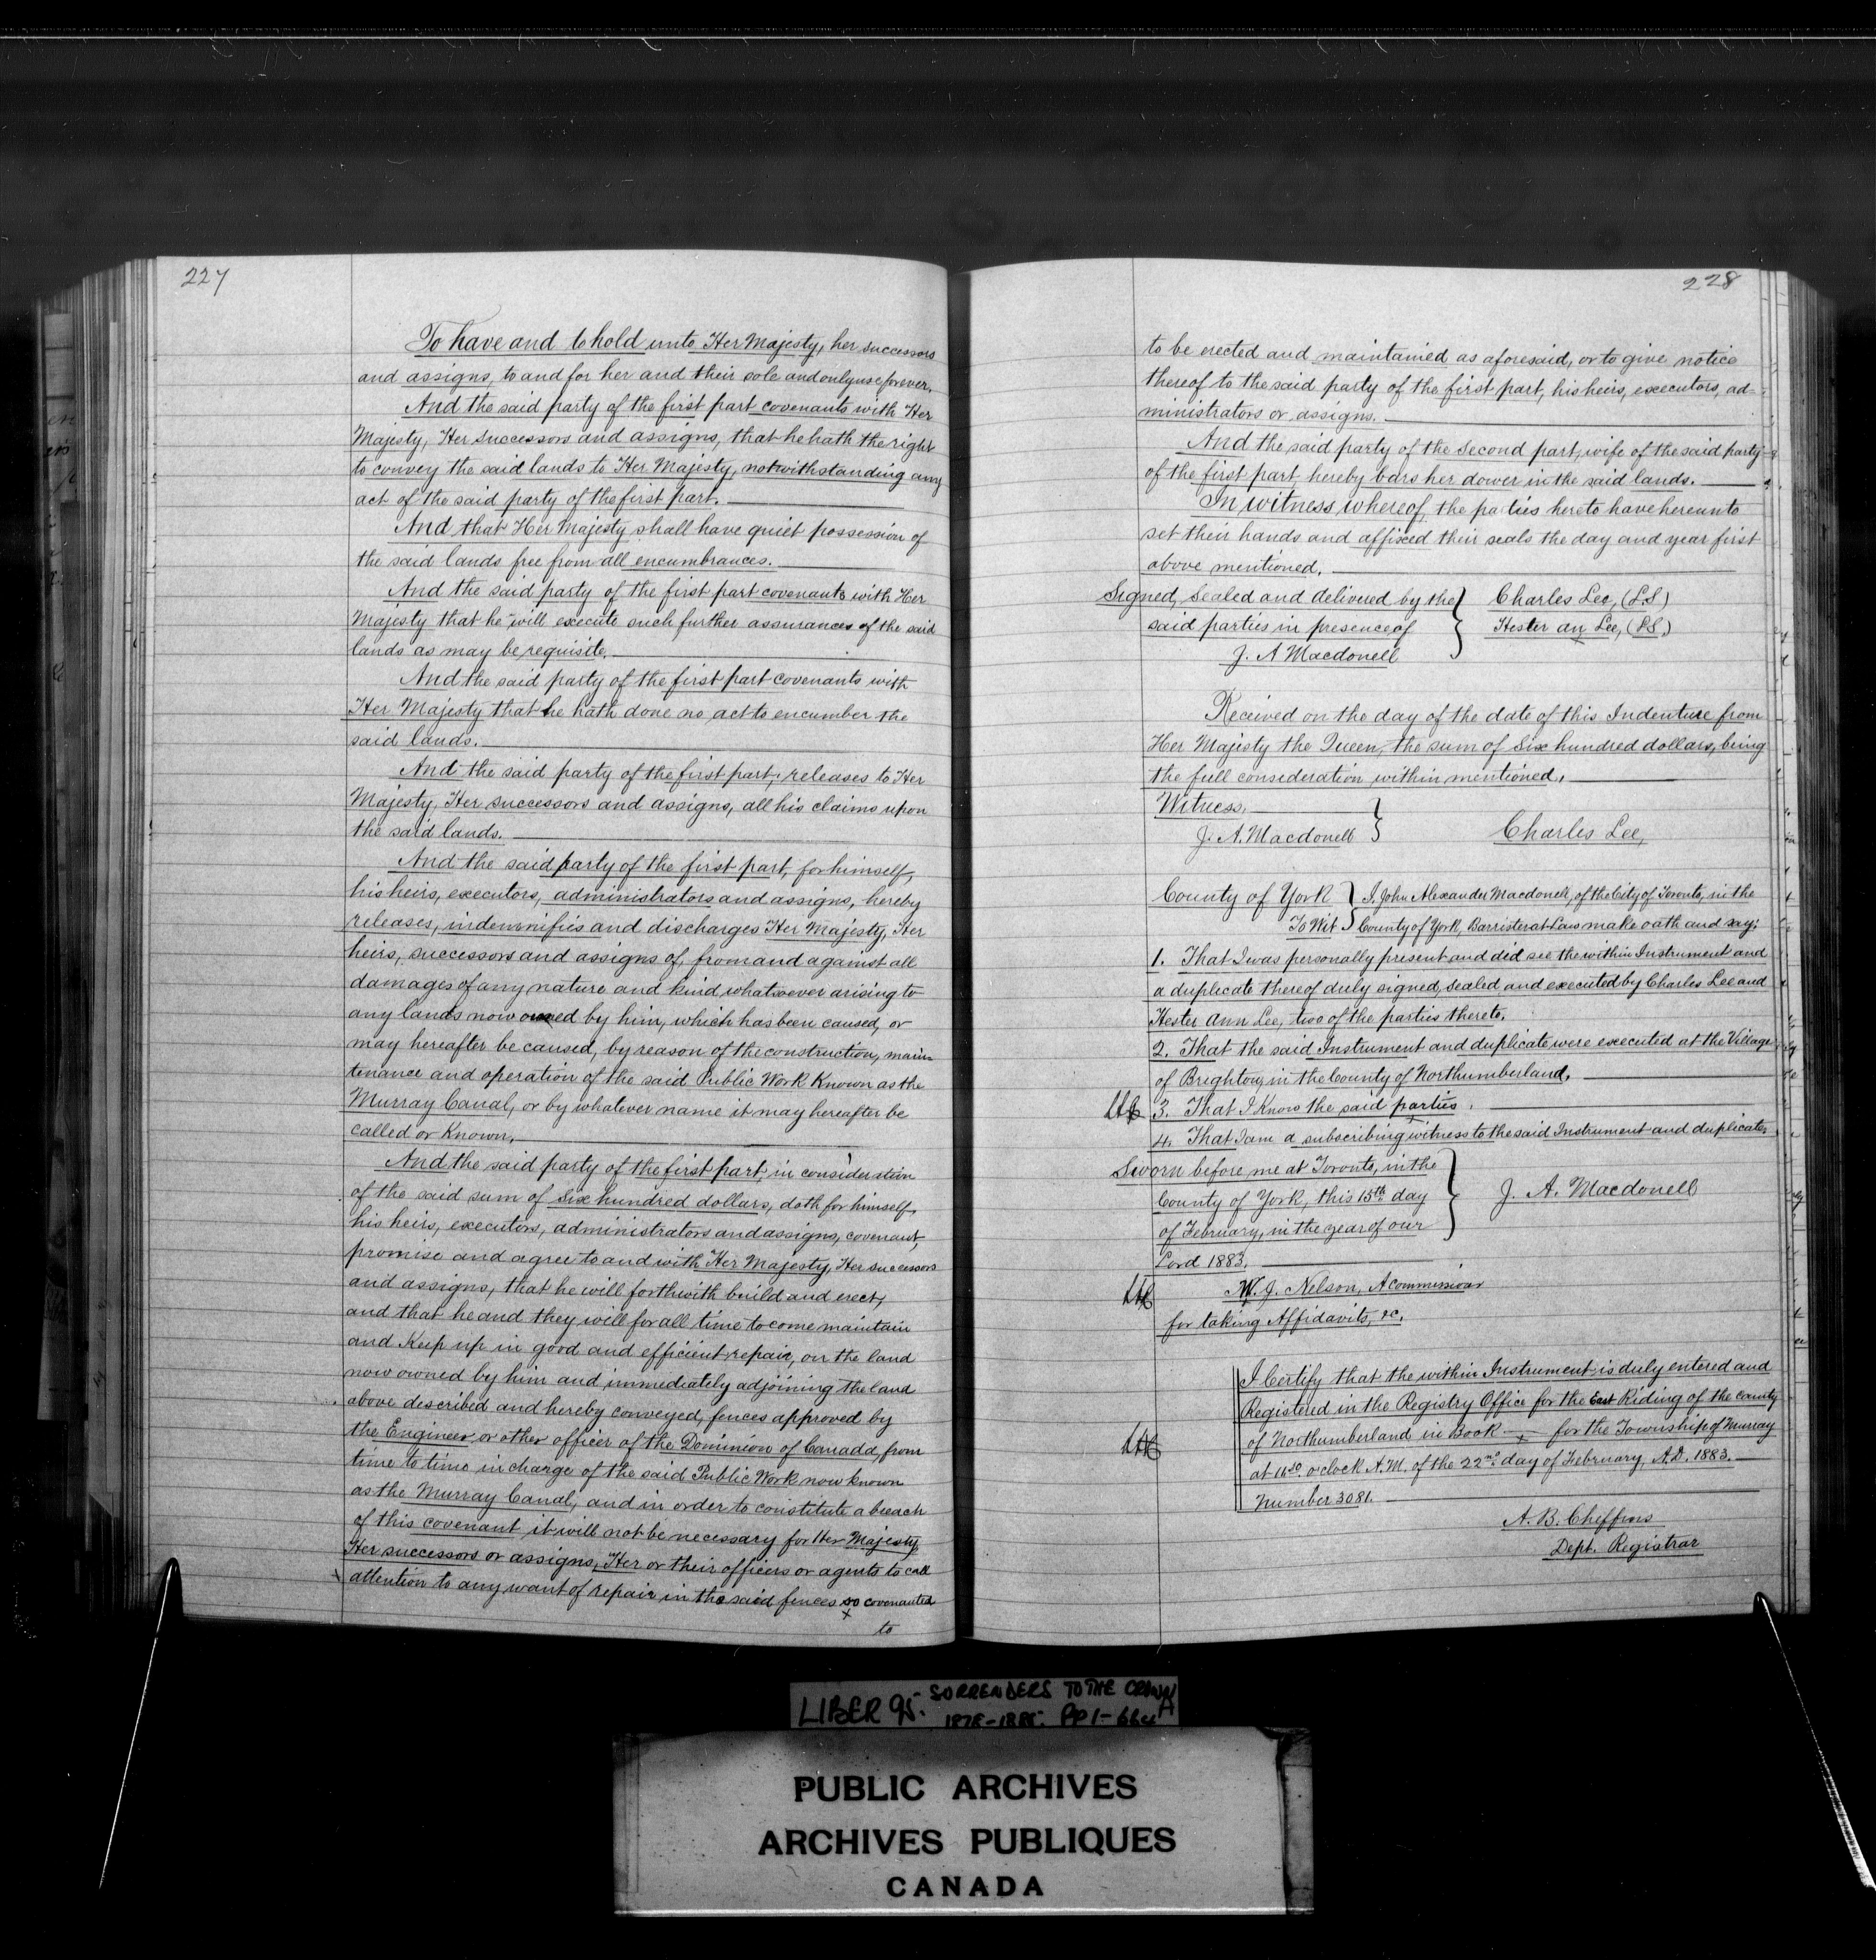 227
To have and to hold unto Her Majesty, her successors
and assigns, to and for her and their sole and only use forever.
And the said party of the first part covenants with Her
Majesty, Her successors and assigns, that he hath the right
to convey the said lands to Her Majesty, notwithstanding any
act of the said party of the first part.
And that Her Majesty shall have quiet possession of
the said lands free from all encumbrances.
And the said party of the first part covenants with Her
Majesty that he will execute such further assurances of the said
lands as may be requisite.
And the said party of the first part covenants with
Her Majesty that he hath done no act to encumber the
said lands.
And the said party of the first part, releases to Her
Majesty, Her successors and assigns, all his claims upon
the said lands.
And the said party of the first part, for himself,
his heirs, executors, administrators and assigns, hereby
releases, indemnifies and discharges Her Majesty, Her
heirs, successors and assigns of, from and against all
damages of any nature and kind whatsoever arising to
any lands now owned by him, which has been caused, or
may hereafter be caused, by reason of the construction, main-
tenance and operation of the said Public Work Known as the
Murray Canal, or by whatever name it may hereafter be
called or Known.
And the said party of the first part, in consideration
of the said sum of Six hundred dollars, doth for himself,
his heirs, executors, administrators and assigns, covenant,
promise and agree to and with Her Majesty, Her successors
and assigns, that he will forthwith build and erect,
and that he and they will for all time to come maintain
and Keep up in good and efficient repair, on the land
now owned by him and immediately adjoining the land
above described and hereby conveyed, fences approved by
the Engineer or other officer of the Dominion of Canada, from
time to time in charge of the said Public Work now known
as the Murray Canal, and in order to constitute a breach
of this covenant it will not be necessary for Her Majesty
Her successors or assigns, Her or their officers or agents to call
attention to any want of repair in the said fences so covenanted
to
228
to be erected and maintained as aforesaid, or to give notice
thereof to the said party of the first part, his heirs, executors, ad-
ministrators or assigns.
And the said party of the Second part, wife of the said party
of the first part hereby bars her dower in the said lands.
In witness whereof, the parties hereto have hereunto
set their hands and affixed their seals the day and year first
above mentioned.
Signed, Sealed and delivered by the } Charles Lee, (LS)
said parties in presence of } Hester an Lee, (LS.)
J. A Macdonell
Received on the day of the date of this Indenture from
Her Majesty the Queen, the sum of Six hundred dollars, being
the full consideration within mentioned.
Witness.
J. A. Macdonell } Charles Lee,
County of York } I, John Alexander Macdonell, of the City of Toronto, in the
To Wit } County of York, Barrister at Law make oath and say:
1. That I was personally present and did see the within Instrument and
a duplicate thereof duly signed, Sealed and executed by Charles Lee and
Hester Ann Lee, two of the parties thereto.
2. That the said Instrument and duplicate were executed at the Village
of Brighton, in the County of Northumberland.
3. That I Know the said parties.
4. That I am a subscribing witness to the said Instrument and duplicate.
Sworn before me at Toronto, in the
County of York, this 15th day } J. A. Macdonell
of February, in the year of our
Lord 1883.
W. J. Nelson, A commissioner
for taking Affidavits, &c.
I Certify that the within Instrument is duly entered and
Registered in the Registry Office for the East Riding of the County
of Northumberland in Book — for the Township of Murray
at o'clock A.M. of the 22nd day of February, A.D. 1883.
Number 3081.
A. B. Cheffins
Dept. Registrar
LIBER 95. SORRENDERS TO THE CROWN
1878-1885. PP 1-
PUBLIC ARCHIVES
ARCHIVES PUBLIQUES
CANADA